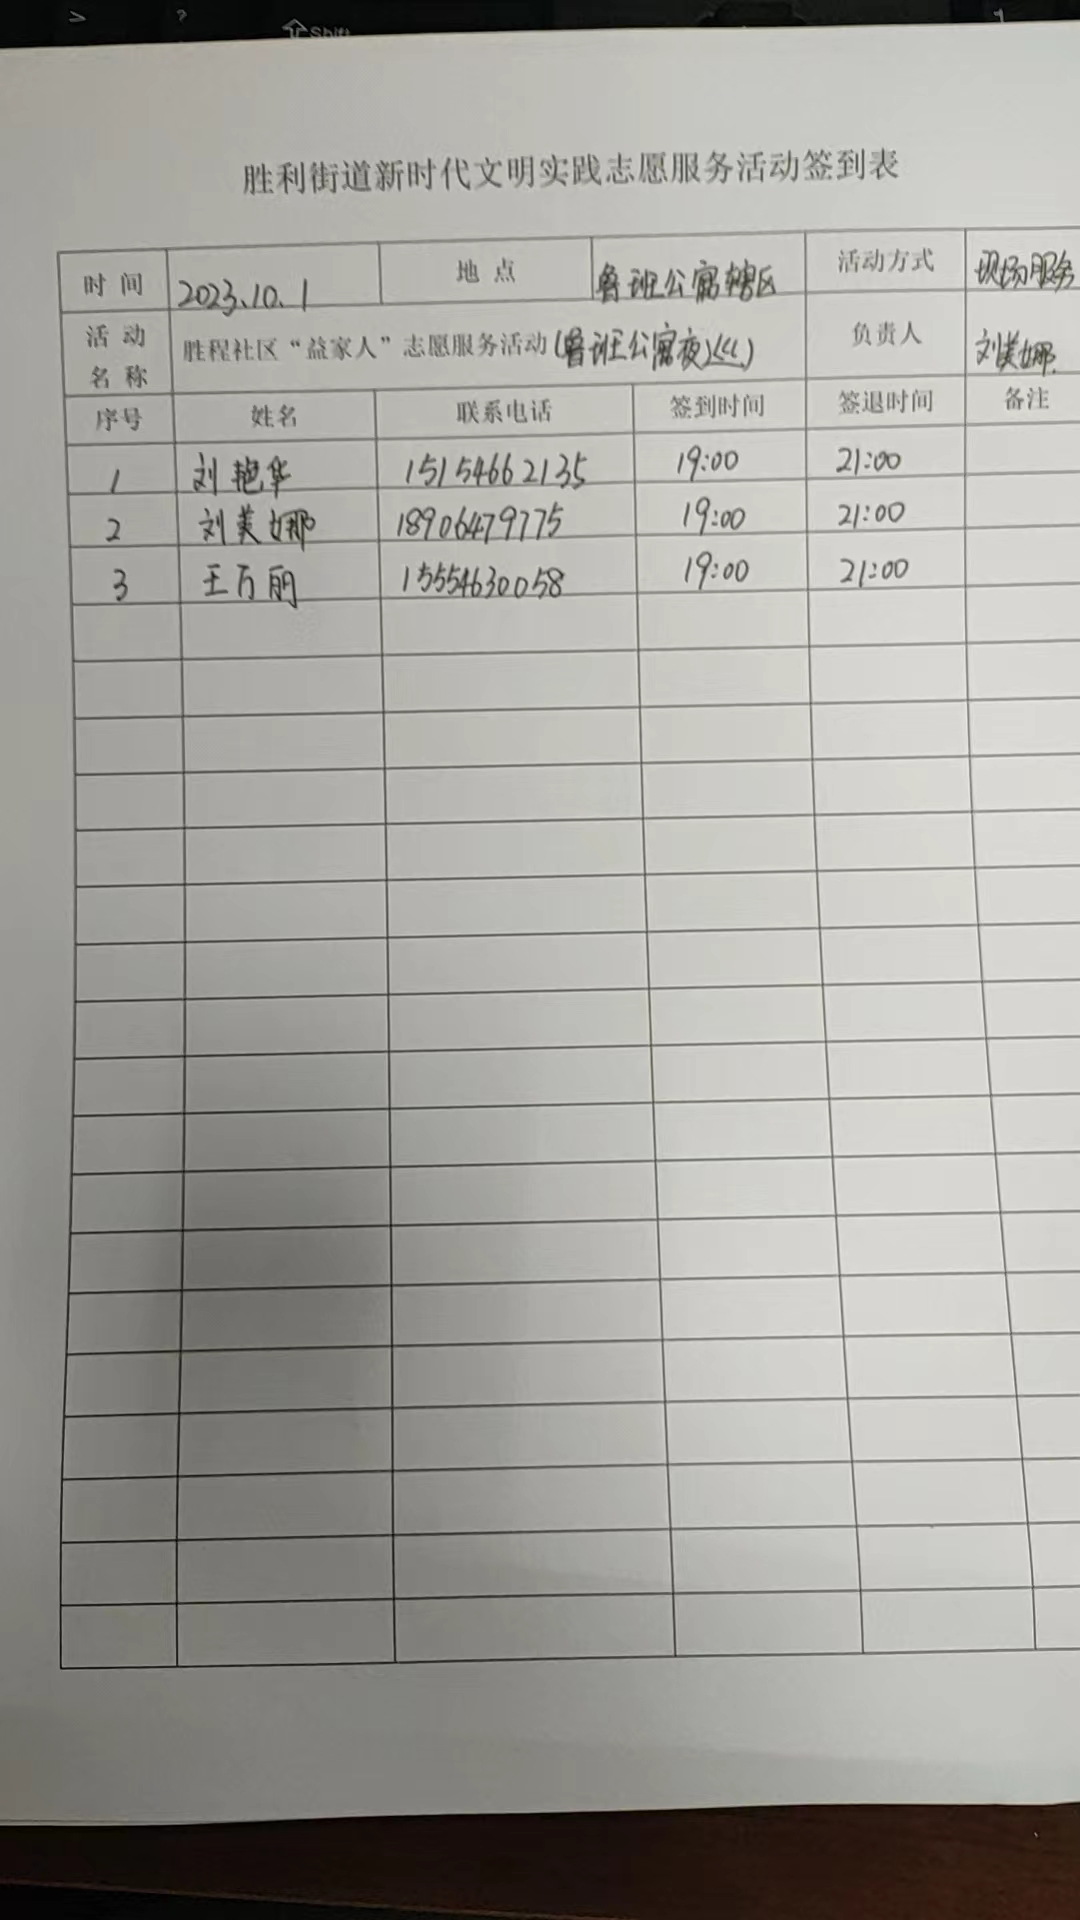 > ? Shift
胜利街道新时代文明实践志愿服务活动签到表
时 间 2023.10.1 地 点 鲁班公寓辖区 活动方式 现场服务
活 动 名 称 胜程社区“益家人”志愿服务活动(鲁班公寓夜巡) 负责人 刘美娜
序号 姓名 联系电话 签到时间 签退时间 备注
1 刘艳华 15154662135 19:00 21:00
2 刘美娜 18906479775 19:00 21:00
3 王万丽 15554630058 19:00 21:00